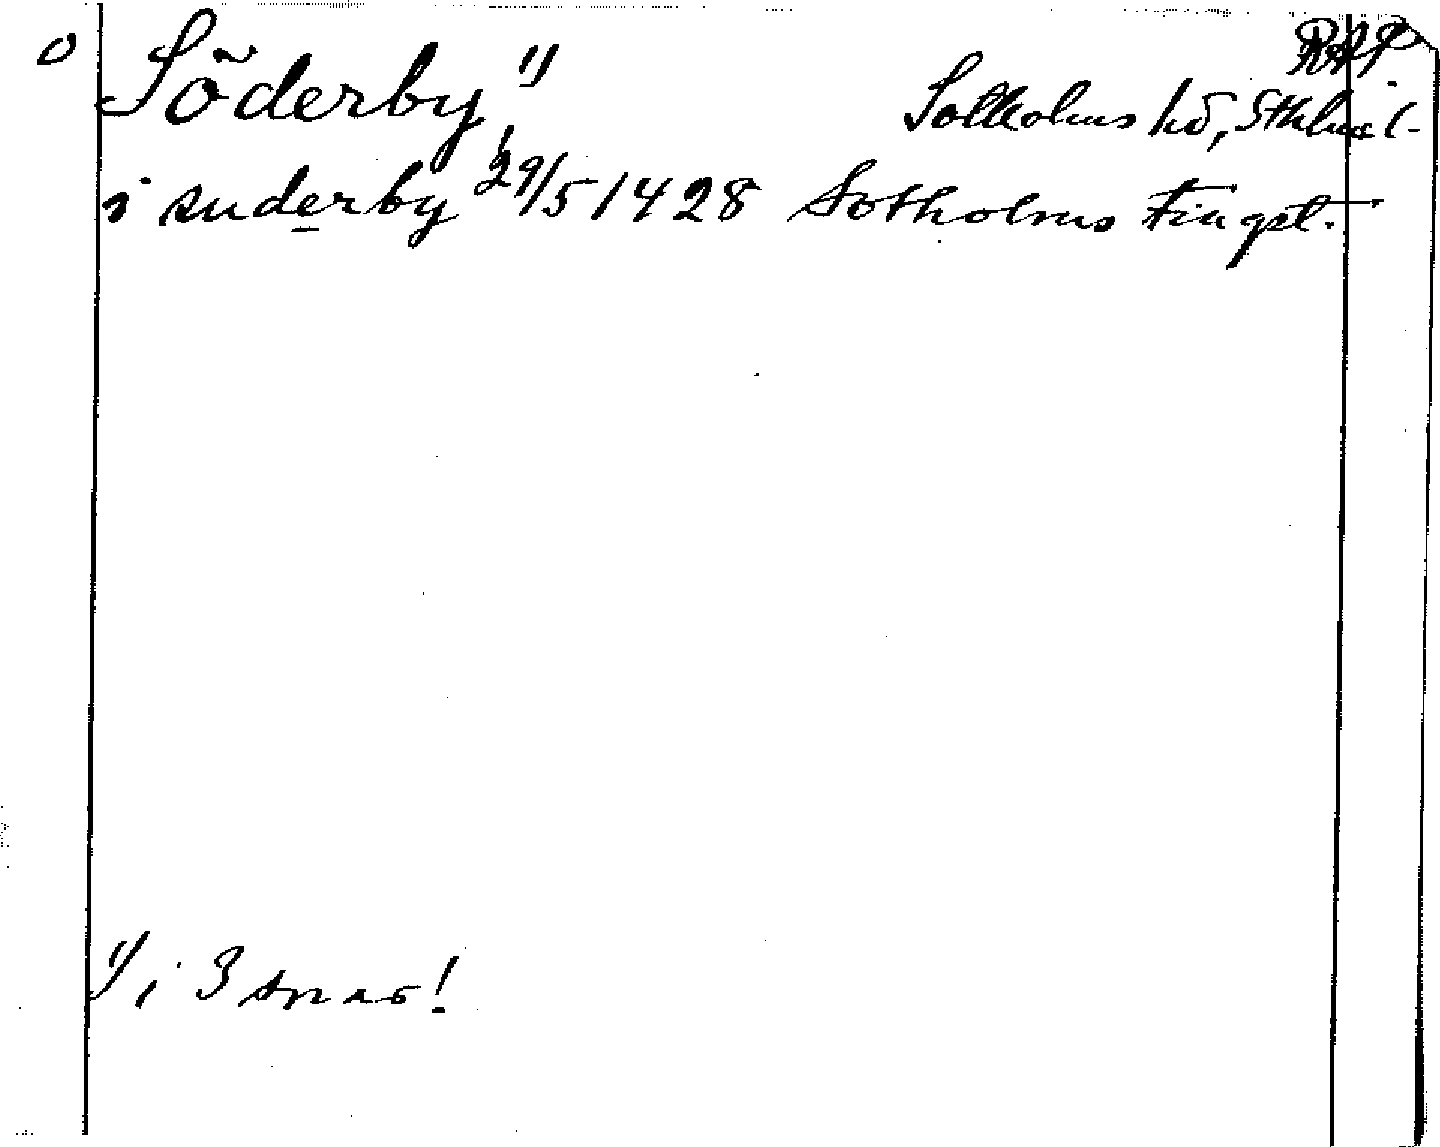 RAP
o Söderby 1)
Sotholms hd, Sthlms l.
i suderby 29/5 1428 Sotholms tingst.
1) i 3 snar!